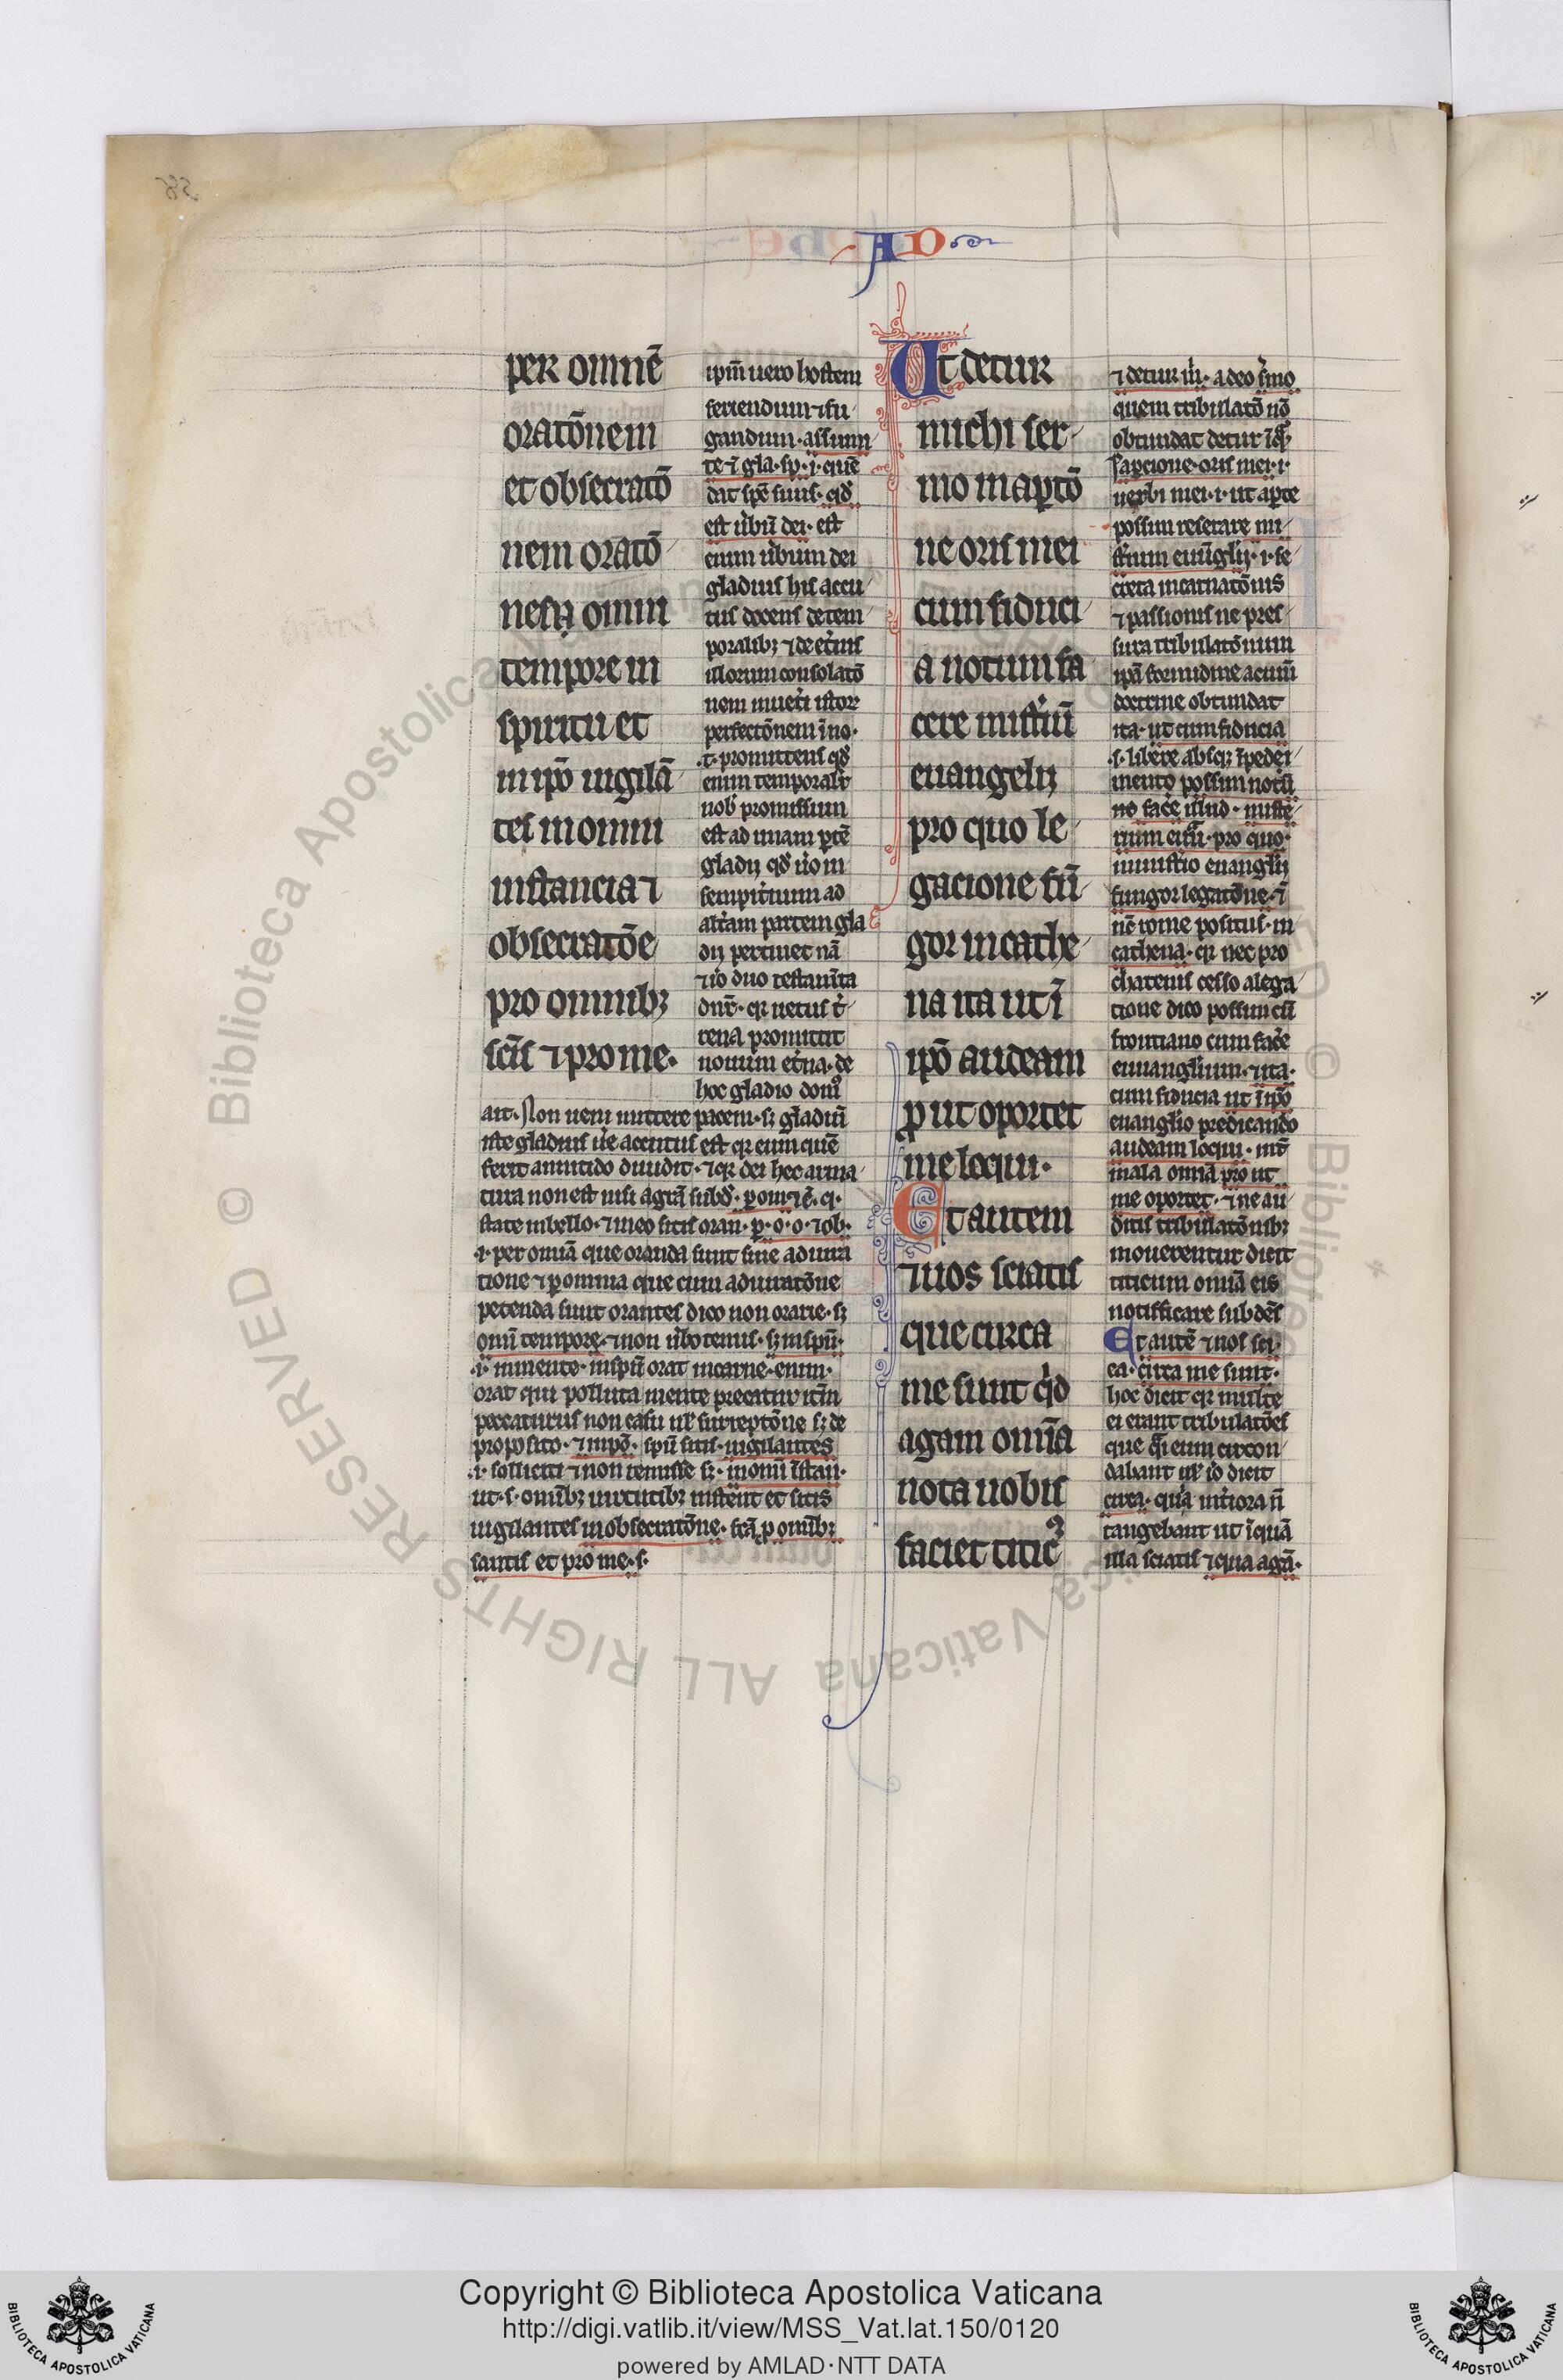 AD
per omnē
oratōnem
et obsecratō
nem oratō
nesq̨ omni
tempore in
spiritu et
in ip̄o uigilā
tes in omni
instancia ⁊
obsecratōe
pro omnibꝫ
sc̄is ⁊ pro me.
ip̄m uero hostem
feriendum ⁊ fu
gandum. assumi
te ⁊ gla. sp̄. i. quē
dat sp̄c suus. qđ
est ůbū dei. est
enim ůbum dei
gladius his accu
tus docens de tem
poralibꝫ ⁊ de eťnis
illorum consolatō
nem
perfectōnem ī no.
.t. promittens qđ
enim temporalr̄
uob' promissum
est ad unam ꝑtē
gladij qđ ůo in
sempiťnum ad
alťam partem gla
dij pertinet nā
⁊ iō duo testam̄ta
dn̄r. qr uetus t'
rena promittit
nouum eťna. de
hoc gladio dom̄s
ait. Non ueni mittere pacem. sꝫ gladiū
iste gladius ualde accutus est qr eum quē
ferit diuidit. ⁊ qr dei hec arma
tura non est nisi
state in bello. ⁊ in eo sitis oran. ꝑ. o. o. ⁊ ob.
.i. per omīa que oranda sunt sine adiura
tione ⁊ ꝑ omnia que cum adiuratōne
petenda sunt orantes dico non orarie. sꝫ
omī tempore. ⁊ non ůbotenus. sꝫ in spū.
.i. in mente. in spū orat in carne. enim.
orat qui polluta mente precatur itm̄
peccaturus non casu ul' surreptōne sꝫ de
proposito. ⁊ in ip̄o. spū sitis. uigilantes
.i. solliciti ⁊ non remisse sꝫ. in omī īstan.
ut. s. omībꝫ uirtutibꝫ instent et sitis
uigilantes in obsecratōne. fcā ꝑ omībꝫ
santis et pro me. s.
Ut detur
michi ser
mo in aꝑtō
ne oris mei
cum fiduci
a notum fa
cere mist'iū
euangelij
pro quo le
gacione fū
gor in cathe
na ita ut ī
ip̄o audeam
ꝓut oportet
me loqui.
Et autem
⁊ uos sciatis
que circa
me sunt qđ
agam om̄ia
nota uobis
faciet titic'
⁊ detur m̄. a deo s̄mo
quem tribulatō nō
obtundat detur
i aꝑcione. oris mei. i.
uerbi mei. i. ut aꝑte
possim reserare mi
st'ium euūglij. i. se
creta incarnatōnis
⁊ passionis ne pres
sura tribulatōnum
ip̄a formidine acum̄
doctrine obtundat
ita. ut cum fiducia
.i. libere absqꝫ īpedi
mento possim notū
no fac'e illud. miste
rium eiū. pro quo.
ministrio euanglij
fungor legatōne. ⁊
nc̄ rome positus. in
cathena. qr nec pro
chatenis cesso alega
tione dico possim cū
frontiano cum fac'e
euuanglium. ⁊ ita.
cum fiducia ut ī ip̄o
euanglio predicando
audeam loqui. int'
mala omīa pro ut
me oportet. ⁊ ne au
ditis tribulatōnibꝫ
mouerentur dicit
titicum omīa eis
notifficare subdēs
Et autē ⁊ uos sci.
ea. circa me sunt.
hoc dicit qr multe
ei erant tribulatōes
que q̄i eum circon
dabant ul' iō dicit
circa. quia int'iora n̄
tangebant ut ī quā
illa sciatis ⁊ quia agā.
Copyright © Biblioteca Apostolica Vaticana
http://digi.vatlib.it/view/MSS_Vat.lat.150/0120
powered by AMLAD·NTT DATA
BIBLIOTECA APOSTOLICA VATICANA
BIBLIOTECA APOSTOLICA VATICANA
© Biblioteca Apostolica Vaticana ALL RIGHTS RESERVED